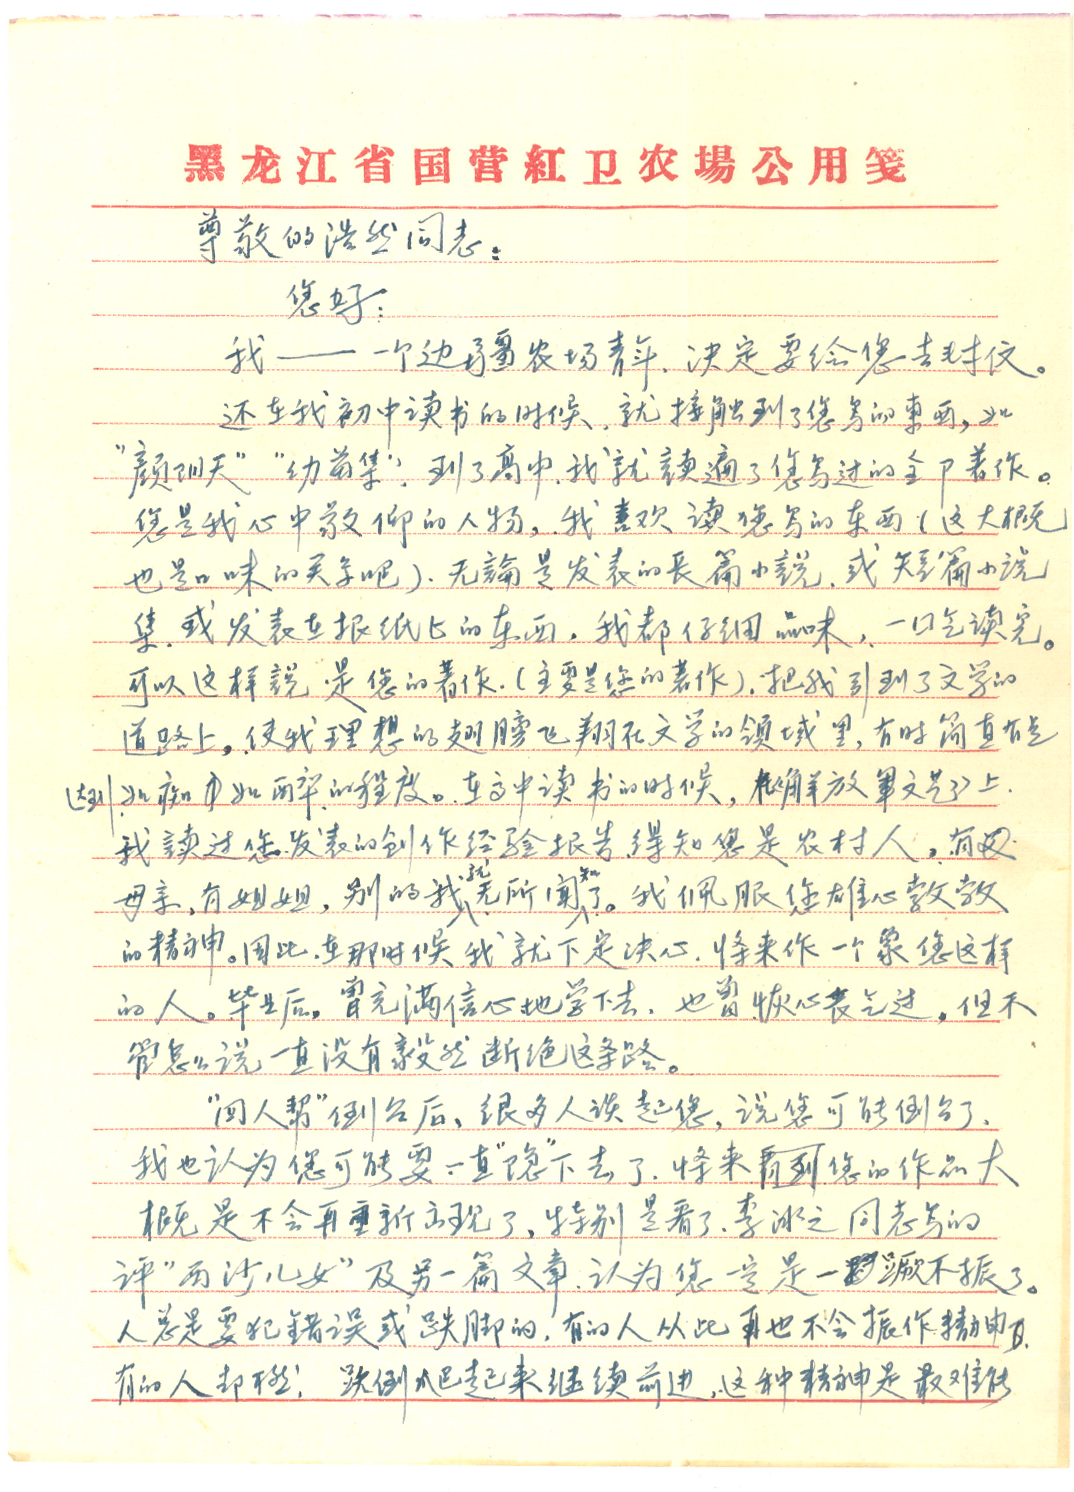 黑龙江省国营紅卫农場公用箋
尊敬的浩然同志：
您好：
我——一个边疆农场青年，决定要给您去封信。
还在我初中读书的时候，就接触到了您写的东西，如
“艳阳天”“幼苗集”。到了高中，我就读遍了您写过的全卩著作。
您是我心中敬仰的人物，我喜欢读您写的东西（这大概
也是口味的关系吧）。无論是发表的长篇小説，或短篇小说
集，或发表在报纸上的东西，我都仔细品味，一口气读完。
可以这样説，是您的著作（主要是您的著作），把我引到了文学的
道路上，使我理想的翅膀飞翔在文学的领域里，有时简直有点
达到如痴如醉的程度。在高中读书的时候，在解放軍文艺上，
我読过您发表的创作经验报告，得知您是农村人，有
母亲，有姐姐，别的我就无所闻知了。我佩服您雄心勃勃
的精神。因此，在那时候我就下定决心，将来作一个象您这样
的人。毕业后，曾充满信心地学下去，也曾恢心丧气过，但不
管怎么说一直没有毅然断绝这条路。
“四人帮”倒台后，很多人谈起您，说您可能倒台了，
我也认为您可能要一直“隐”下去了，将来看到您的作品大
概是不会再重新出现了，特别是看了李冰之同志写的
评“西沙儿女”及另一篇文章，认为您一定是一蹶不振了。
人总是要犯错误或跌脚的，有的人从此再也不会振作精神，
有的人却不然，跌倒爬起来继续前进，这种精神是最难能